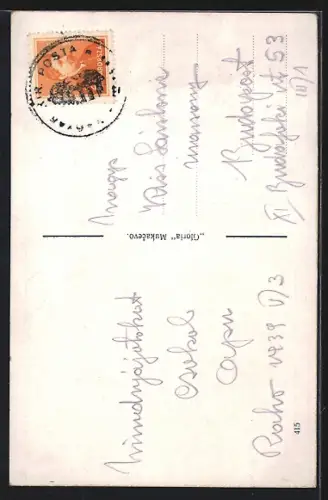 MAGYAR KIR. POSTA
Nagys
Kiss Sándorné
urasszony
Budapest
XI Budafoki út 53
III/1
„Gloria" Mukačevo.
Mindnyájatokat
csókol
Apu
Rahó 1939 V/3
415